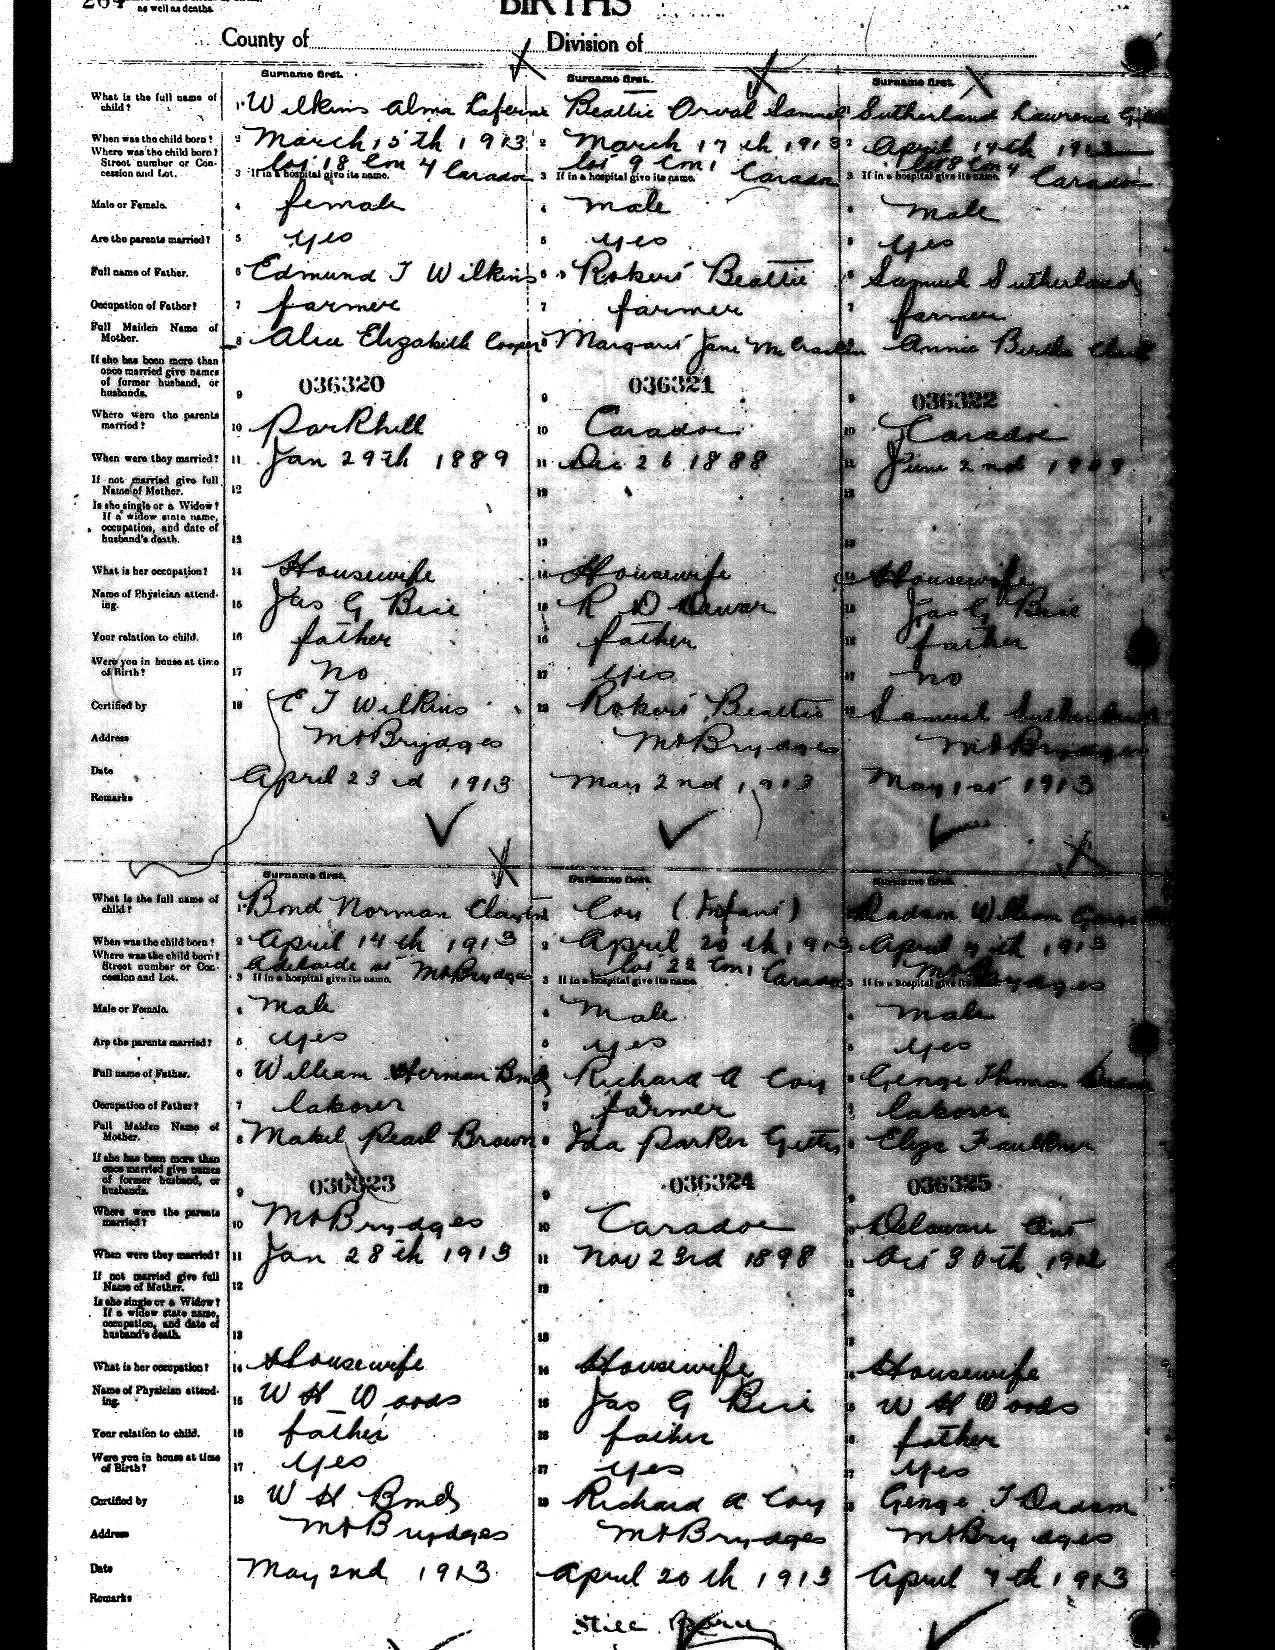 264
as well as deaths.
BIRTHS
County of Division of
Surname first. Surname first. Surname first.
What is the full name of child? 1 Wilkins Alma Beattie Orval Samuel Sutherland Lawrence
When was the child born? 2 March 15th 1913 2 March 17th 1913 2 April 14th 1913
Where was the child born? Street number or Concession and Lot. lot 18 Con 4 Caradoc lot 9 Con 1 Caradoc lot 8 Con 4 Caradoc
3 If in a hospital give its name. 3 If in a hospital give its name. 3 If in a hospital give its name.
Male or Female. 4 female 4 male 4 male
Are the parents married? 5 yes 5 yes 5 yes
Full name of Father. 6 Edmund T Wilkins 6 Robert Beattie 6 Samuel Sutherland
Occupation of Father? 7 farmer 7 farmer 7 farmer
Full Maiden Name of Mother. 8 Alice Elizabeth Cooper 8 Margaret Jane McCracken Annie Bertha
If she has been more than once married give names of former husband, or husbands.
9 036320 9 036321 9 036322
Where were the parents married? 10 Parkhill 10 Caradoc 10 Caradoc
When were they married? 11 Jan 29th 1889 11 Dec 26 1888 11 June 2nd 1909
If not married give full Name of Mother. 12 12 12
Is she single or a Widow? If a widow state name, occupation, and date of husband's death. 13 13 13
What is her occupation? 14 Housewife 14 Housewife 14 Housewife
Name of Physician attending. 15 Jas G Bice 15 R D Dewar 15 Jas G Bice
Your relation to child. 16 father 16 father 16 father
Were you in house at time of Birth? 17 no 17 yes 17 no
Certified by 18 E T Wilkins 18 Robert Beattie 18 Samuel Sutherland
Address Mt Brydges Mt Brydges Mt Brydges
Date April 23rd 1913 May 2nd 1913 May 1st 1913
Remarks
Surname first. Surname first. Surname first.
What is the full name of child? 1 Bond Norman Clayton Coy (Infant) Dadson William George
When was the child born? 2 April 14th 1913 2 April 20th 1913 April 4th 1913
Where was the child born? Street number or Concession and Lot. Adelaide st Mt Brydges lot 22 Con 1 Caradoc Mt Brydges
3 If in a hospital give its name. 3 If in a hospital give its name. 3 If in a hospital give its
Male or Female. 4 Male 4 Male 4 male
Are the parents married? 5 yes 5 yes 5 yes
Full name of Father. 6 William Herman Bond Richard A Coy 6 George Thomas Dadson
Occupation of Father? 7 laborer 7 farmer 7 laborer
Full Maiden Name of Mother. 8 Mabel Pearl Brown 8 Ida Parker 8 Eliza Faulkner
If she has been more than once married give names of former husband, or husbands.
9 036323 9 036324 9 036325
Where were the parents married? 10 Mt Brydges 10 Caradoc 10 Delaware Ont
When were they married? 11 Jan 28th 1913 11 Nov 23rd 1898 11 Oct 30th
If not married give full Name of Mother. 12 12 12
Is she single or a Widow? If a widow state name, occupation, and date of husband's death. 13 13 13
What is her occupation? 14 Housewife 14 Housewife 14 Housewife
Name of Physician attending. 15 W H Woods 15 Jas G Bice 15 W H Woods
Your relation to child. 16 father 16 father 16 father
Were you in house at time of Birth? 17 yes 17 yes 17 yes
Certified by 18 W H Bond 18 Richard A Coy 18 George T Dadson
Address Mt Brydges Mt Brydges Mt Brydges
Date May 2nd 1913 April 20th 1913 April 7th 1913
Remarks
Still Born